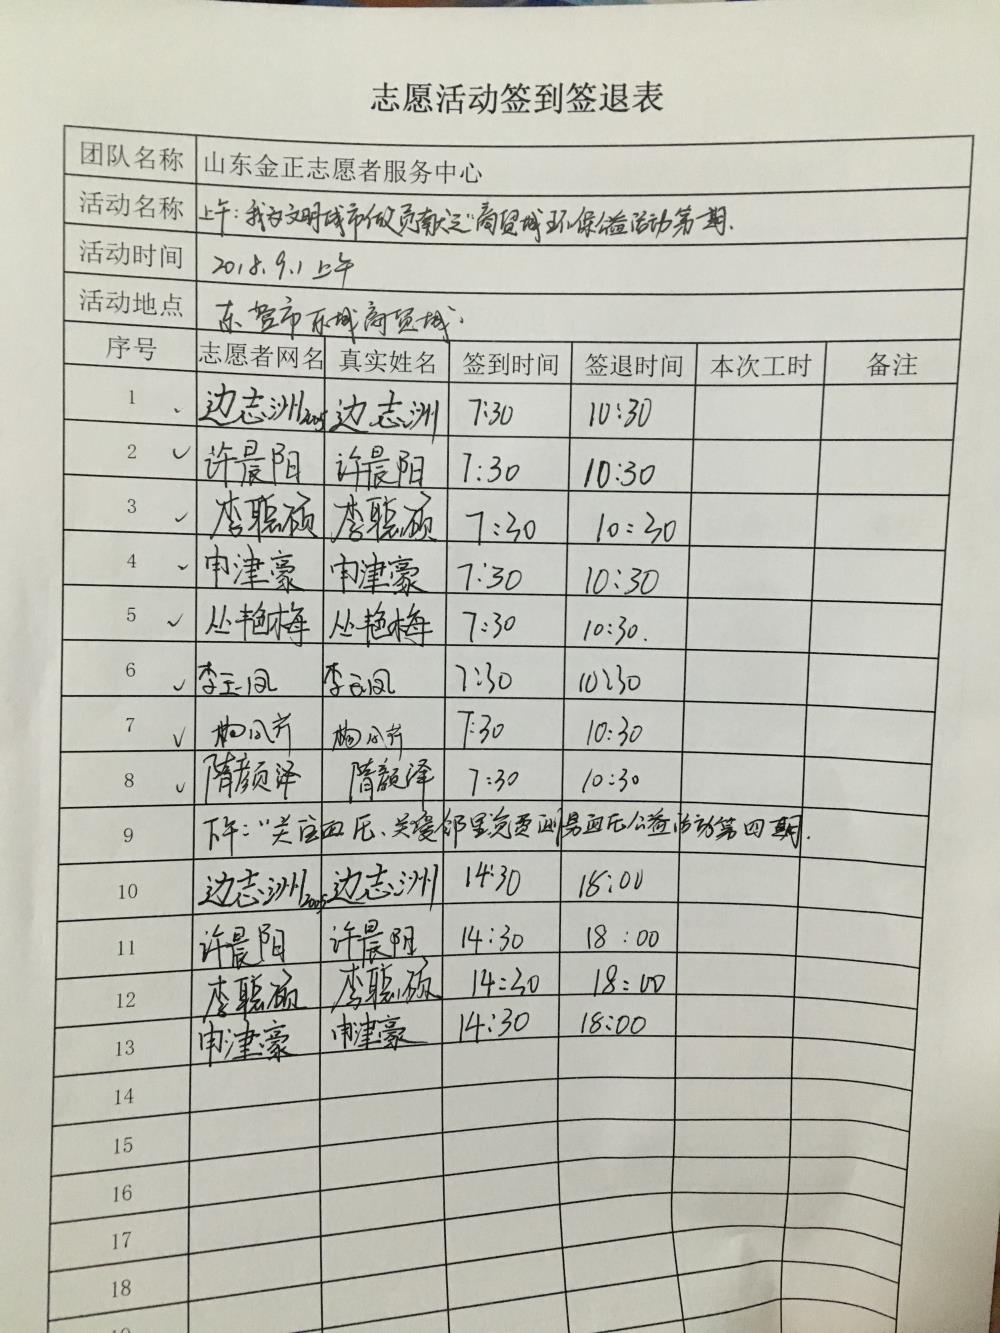 志愿活动签到签退表
团队名称 山东金正志愿者服务中心
活动名称 上午：我为文明城市做贡献之"商贸城环保公益活动第一期.
活动时间 2018.9.1上午
活动地点 东营市东城商贸城.
序号 志愿者网名 真实姓名 签到时间 签退时间 本次工时 备注
1 边志洲2005 边志洲 7:30 10:30
2 许晨阳 许晨阳 7:30 10:30
3 李聪硕 李聪硕 7:30 10:30
4 申津豪 申津豪 7:30 10:30
5 丛艳梅 丛艳梅 7:30 10:30.
6 李玉凤 李玉凤 7:30 10:30
7 7:30 10:30
8 隋颜泽 隋颜泽 7:30 10:30
9 下午："关注血压、关爱邻里免费测量血压公益活动第四期.
10 边志洲2005 边志洲 14:30 18:00
11 许晨阳 许晨阳 14:30 18:00
12 李聪硕 李聪硕 14:30 18:00
13 申津豪 申津豪 14:30 18:00
14
15
16
17
18